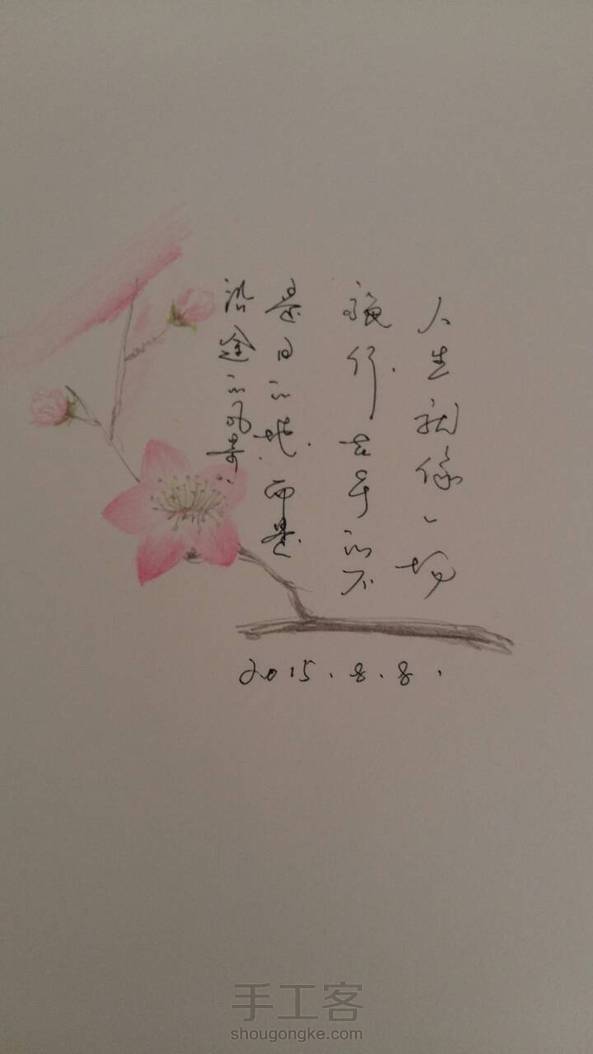 人生就像一场
旅行.在乎的不
是目的地.而是
沿途的风景.
2015.8.8.
手工客
shougongke.com